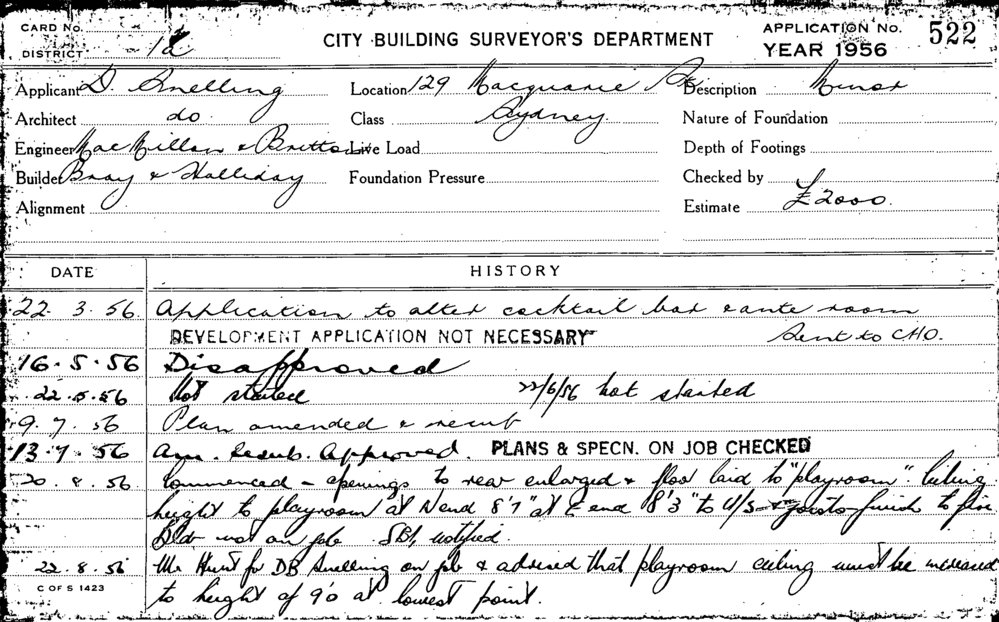 CARD No.
DISTRICT 12
CITY BUILDING SURVEYOR'S DEPARTMENT
APPLICATION No. 522
YEAR 1956
Applicant D. Snelling
Location 129 Macquarie St
Description Minor
Architect do
Class Sydney
Nature of Foundation
Engineer MacMillan & Britton
Live Load
Depth of Footings
Builder Bray & Halliday
Foundation Pressure
Checked by
Alignment
Estimate £2000.
DATE HISTORY
22. 3. 56 Application to alter cocktail bar & ante room
DEVELOPMENT APPLICATION NOT NECESSARY Sent to CHO.
16. 5. 56 Disapproved
22. 5. 56 Not started 22/6/56 Not started
9. 7. 56 Plan amended & resub
13. 7. 56 Am. Resub. Approved. PLANS & SPECN. ON JOB CHECKED
20. 8. 56 Commenced - openings to rear enlarged & floor laid to "playroom". Ceiling
height to playroom at N end 8'7" at end 8'3" to U/S joists finish to
Bldr not on job SBI notified.
22. 8. 56 Mr Hunt for DB Snelling on job & advised that playroom ceiling must be increased
C OF S 1423
to height of 9'0 at lowest point.